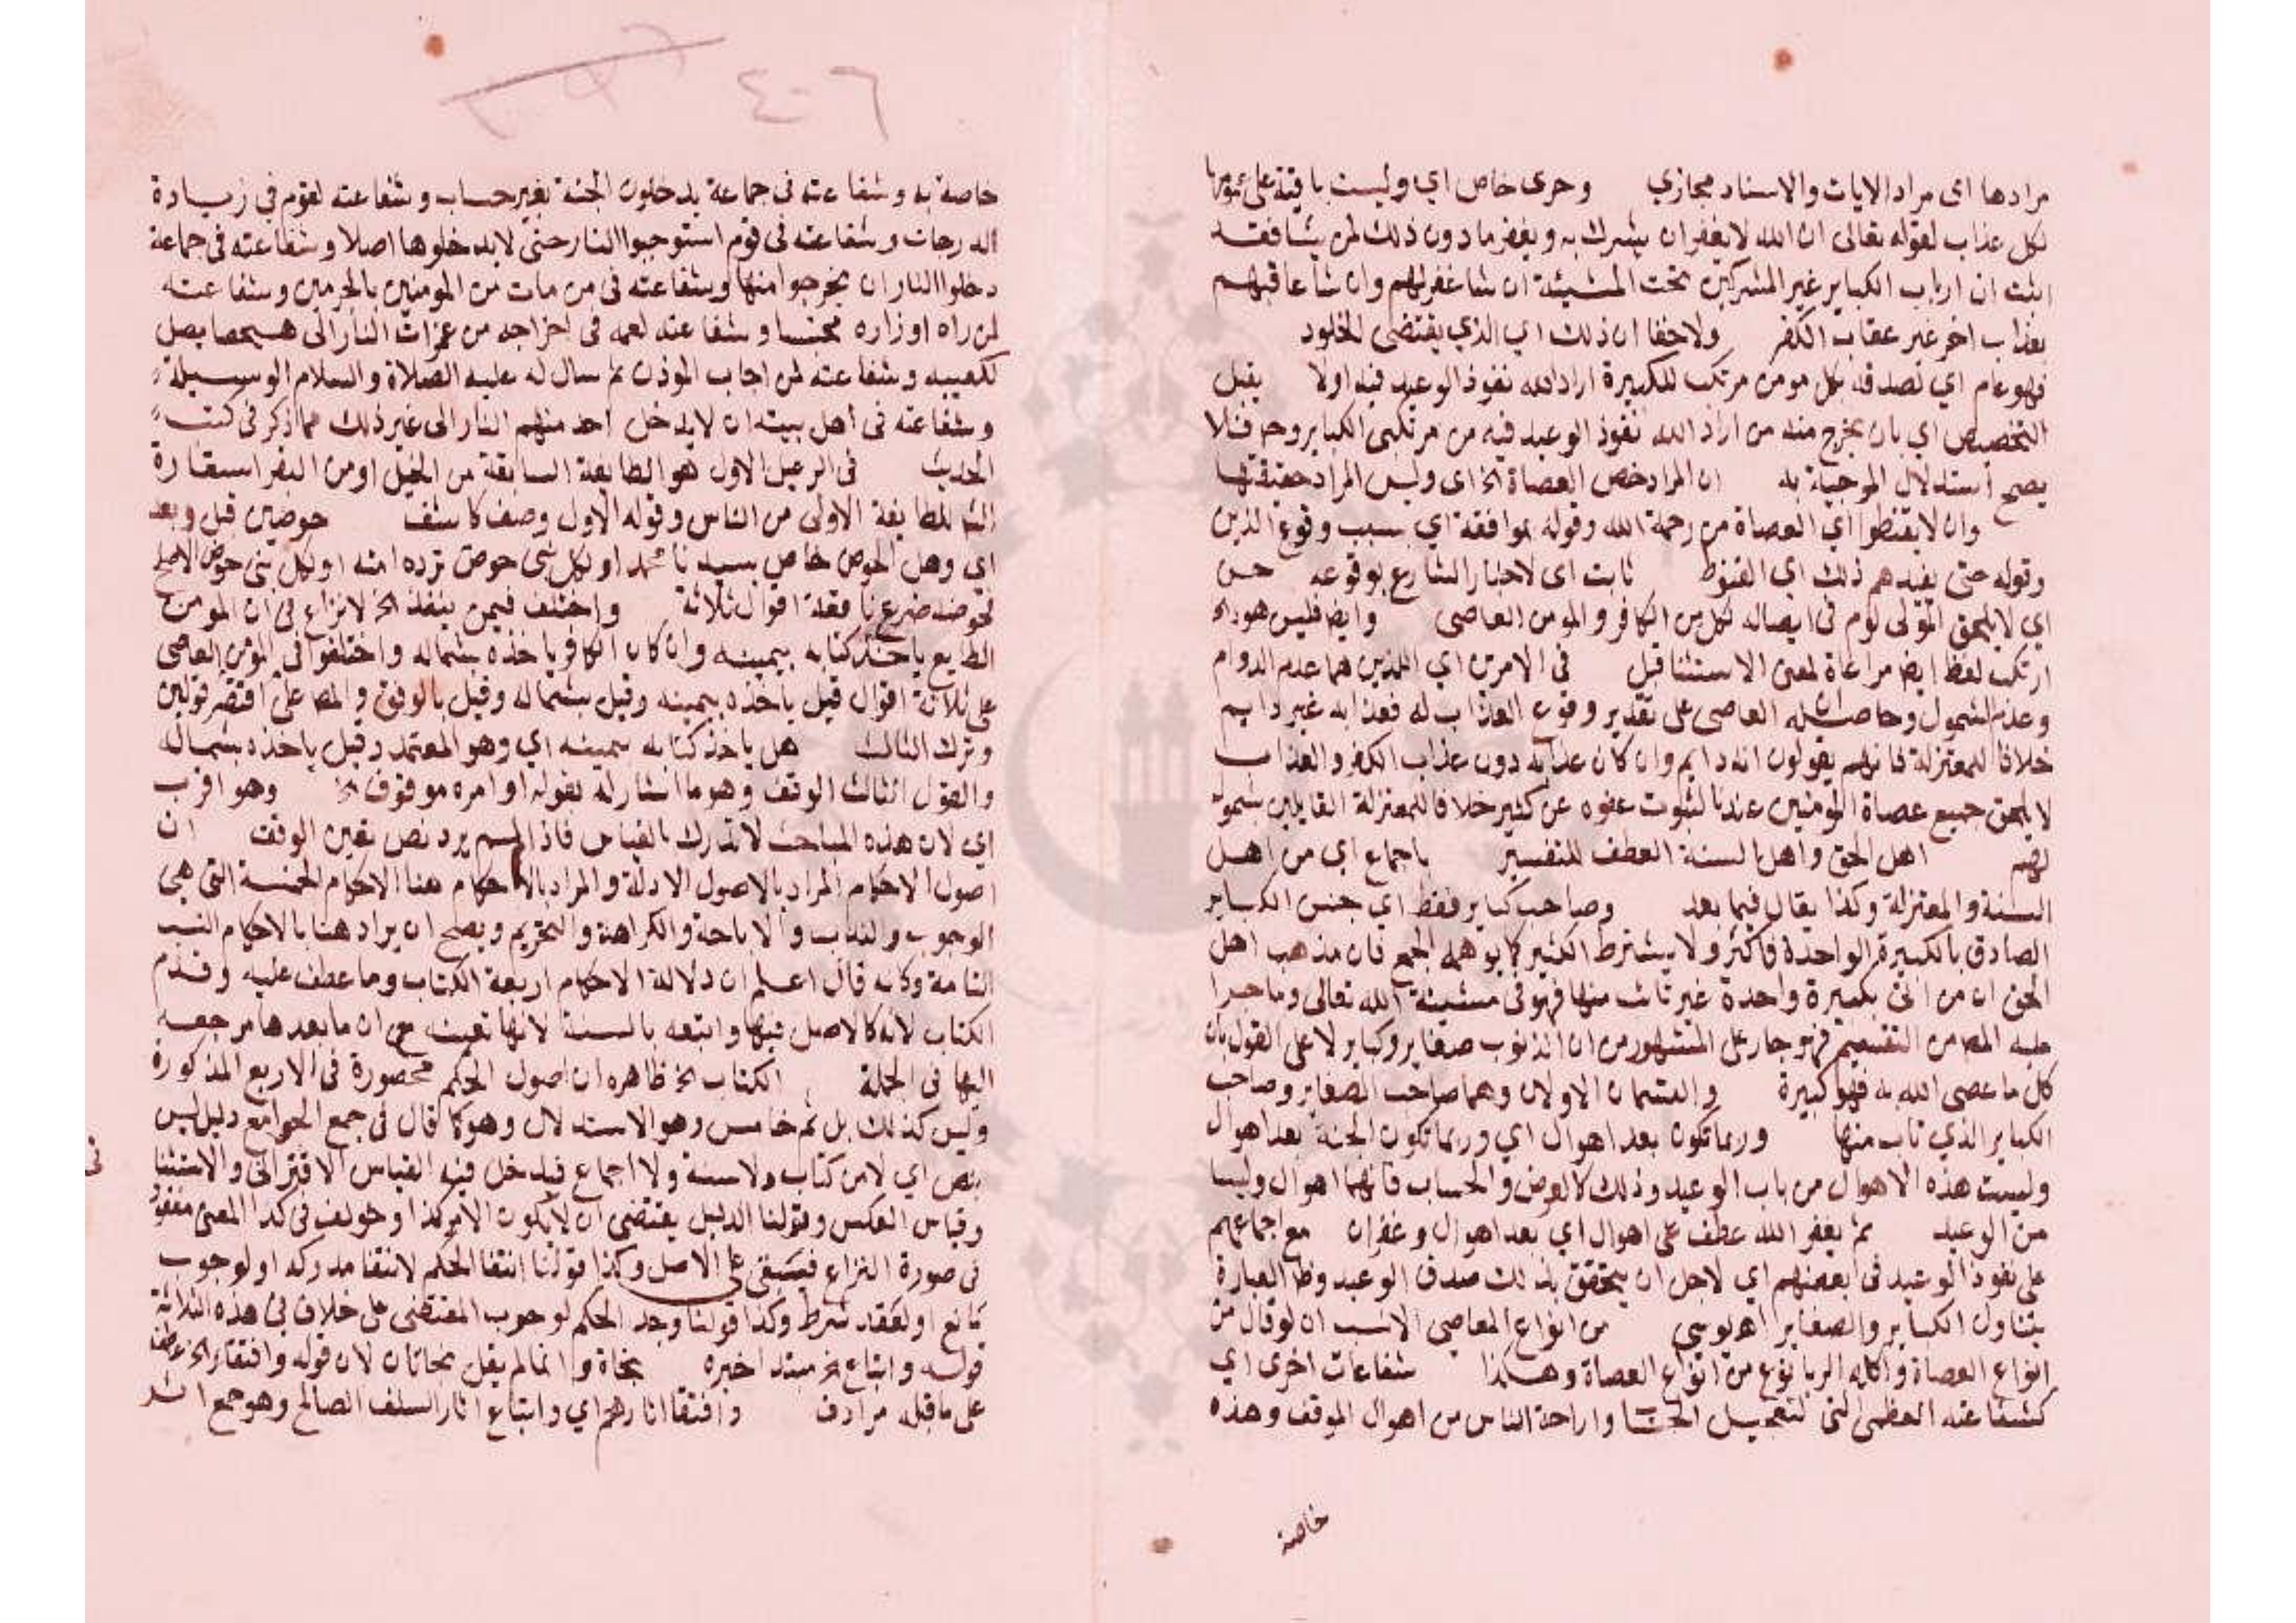 مرادها اى مراد الايات والاسناد مجازي وحرى خاص اي وليست باقية على عمومها
لكل عذاب لقوله تعالى ان الله لا يغفر ان يشرك به ويغفر ما دون ذلك لمن يشا فقد
اثبت ان ارباب الكباير غير المشركين تحت المشيئة ان شا غفر لهم وان شا عاقبهم
بعذاب اخر غير عقاب الكفر ولا خفا ان ذلك اي الذي يقتضى الخلود
فهو عام اي لصدقه بكل مومن مرتكب للكبيرة اراد الله نفوذ الوعيد فيه اولا يقبل
التخصيص اي بان يخرج منه من اراد الله نفوذ الوعيد فيه من مرتكبى الكباير وح فلا
يصح استدلال المرجية به ان المراد خص العصاة الخ اى وليس المراد حقيقتها
وان لا يقنطوا اي العصاة من رحمة الله وقوله بموافقة اي بسبب وقوع الذين
وقوله حتى يفيدهم ذلك اي القنوط ثابت اى لاخبار الشارع بوقوعه حسن
اي لا يلحق المولى لوم فى ايصاله لكل من الكافر والمومن العاصى وايضا فليس هو الخ
ارتكب لفظ ايضا مراعاة لمعنى الاستثنا قبل فى الامرين اي اللذين هما عدم الدوام
وعدم الشمول وحاصله ان العاصى على تقدير وقوع العذاب له فعذابه غير دايم
خلافا للمعتزلة فانهم يقولون انه دايم وان كان عذابه دون عذاب الكفر والعذاب
لا يلحق جميع عصاة المومنين عندنا لثبوت عفوه عن كثير خلافا للمعتزلة القايلين بشموله
لهم اهل الحق واهل السنة العطف للتفسير باجماع اي من اهل
السنة والمعتزلة وكذا يقال فيما بعد وصاحب كباير فقط اي جنس الكباير
الصادق بالكبيرة الواحدة فاكثر ولا يشترط الكثير كما يوهمه الجمع فان مذهب اهل
الحق ان من اتى بكبيرة واحدة غير تائب منها فهو فى مشيئة الله تعالى وما جرا
عليه المص من التقسيم فهو جار على المشهور من ان الذنوب صغاير وكباير لا على القول بان
كل ما عصى الله به فهو كبيرة والقسمان الاولان وهما صاحب الصغاير وصاحب
الكباير الذي تاب منها وربما تكون بعد اهوال اي وربما تكون الجنة بعد اهوال
وليست هذه الاهوال من باب الوعيد وذلك كالعرض والحساب فانهما اهوال وليسا
من الوعيد ثم يغفر الله عطف على اهوال اي بعد اهوال وغفران مع اجماعهم
على نفوذ الوعيد فى بعضهم اي لاجل ان يتحقق بذلك صدق الوعيد وظ العبارة
يتناول الكباير والصغاير اهـ نوسي من انواع المعاصي الانسب ان لو قال من
انواع العصاة واكله الربا نوع من انواع العصاة وهكذا شفاعات اخرى اي
كشفاعته العظمى التى لتعجيل الحساب واراحة الناس من اهوال الموقف وهذه
خاصة
٤٠٦
خاصة به وشفاعته فى جماعة يدخلون الجنة بغير حساب وشفاعته لقوم فى زيادة
الدرجات وشفاعته فى قوم استوجبوا النار حتى لا يدخلوها اصلا وشفاعته فى جماعة
دخلوا النار ان يخرجوا منها وشفاعته فى من مات من المومنين بالحرمين وشفاعته
لمن راه او زاره محتسبا وشفاعته لعمه فى اخراجه من غمرات النار الى يصل
لكعبيه وشفاعته لمن اجاب الموذن ثم سال له عليه الصلاة والسلام الوسيلة
وشفاعته فى اهل بيته ان لا يدخل احد منهم النار الى غير ذلك مما ذكر فى كتب
الحديث فى الرعيل الاول هو الطايفة السابقة من الخيل او من البقر استعارة
الشا للطايفة الاولى من الناس وقوله الاول وصف كاشف حوضين قبل وبعد
اي وهل الحوض خاص بسيدنا محمد او لكل نبى حوض ترده امته او لكل نبى حوض الا صالح
فحوضه ضرع ناقته اقوال ثلاثة واختلف فيمن ينفذ الخ لا نزاع فى ان المومن
الطايع ياخذ كتابه بيمينه وان كان الكافر ياخذه بشماله واختلفوا فى المومن العاصى
على ثلاثة اقوال قيل ياخذه بيمينه وقيل بشماله وقيل بالوقف والمص اقتصر على قولين
وترك الثالث هل ياخذ كتابه بيمينه اي وهو المعتمد وقيل ياخذه بشماله
والقول الثالث الوقف وهو ما اشار له بقوله او امره موقوف الخ وهو اقرب
اي لان هذه المباحث لا تدرك بالقياس فاذا لم يرد نص تعين الوقف ان
اصول الاحكام المراد بالاصول الادلة والمراد بالاحكام هنا الاحكام الخمسة التى هى
الوجوب والندب والاباحة والكراهة والتحريم ويصح ان يراد هنا بالاحكام النسب
التامة وكانه قال اعلم ان دلالة الاحكام اربعة الكتاب وما عطف عليه وقدم
الكتاب لانه كالاصل فيها واتبعه بالسنة لانها تعينه مع ان ما بعدها مرجعه
اليها فى الجملة الكتاب الخ ظاهره ان اصول الحكم محصورة فى الاربع المذكورة
وليس كذلك بل ثم خامس وهو الاستدلال وهو كما قال فى جمع الجوامع دليل ليس
بنص اي لا من كتاب ولا سنة ولا اجماع فيدخل فيه القياس الاقترانى والاستثنا
فى
وقياس العكس وقولنا الدليل يقتضى ان لا يكون الامر كذا وخولف فى كذا لمعنى مفقود
فى صورة النزاع فيبقى على الاصل وكذا قولنا انتفا الحكم لانتفا مدركه او لوجوب
مانع او لفقد شرط وكذا قولنا وجد الحكم لوجوب المقتضى على خلاف فى هذه الثلاثة
قوله واتباع الخ مبتدا خبره نجاة وانما لم يقل نجاتان لان قوله واقتفاء الخ عطف
على ما قبله مرادف واقتفا اثارهم اي واتباع اثار السلف الصالح وهو جمع اثر